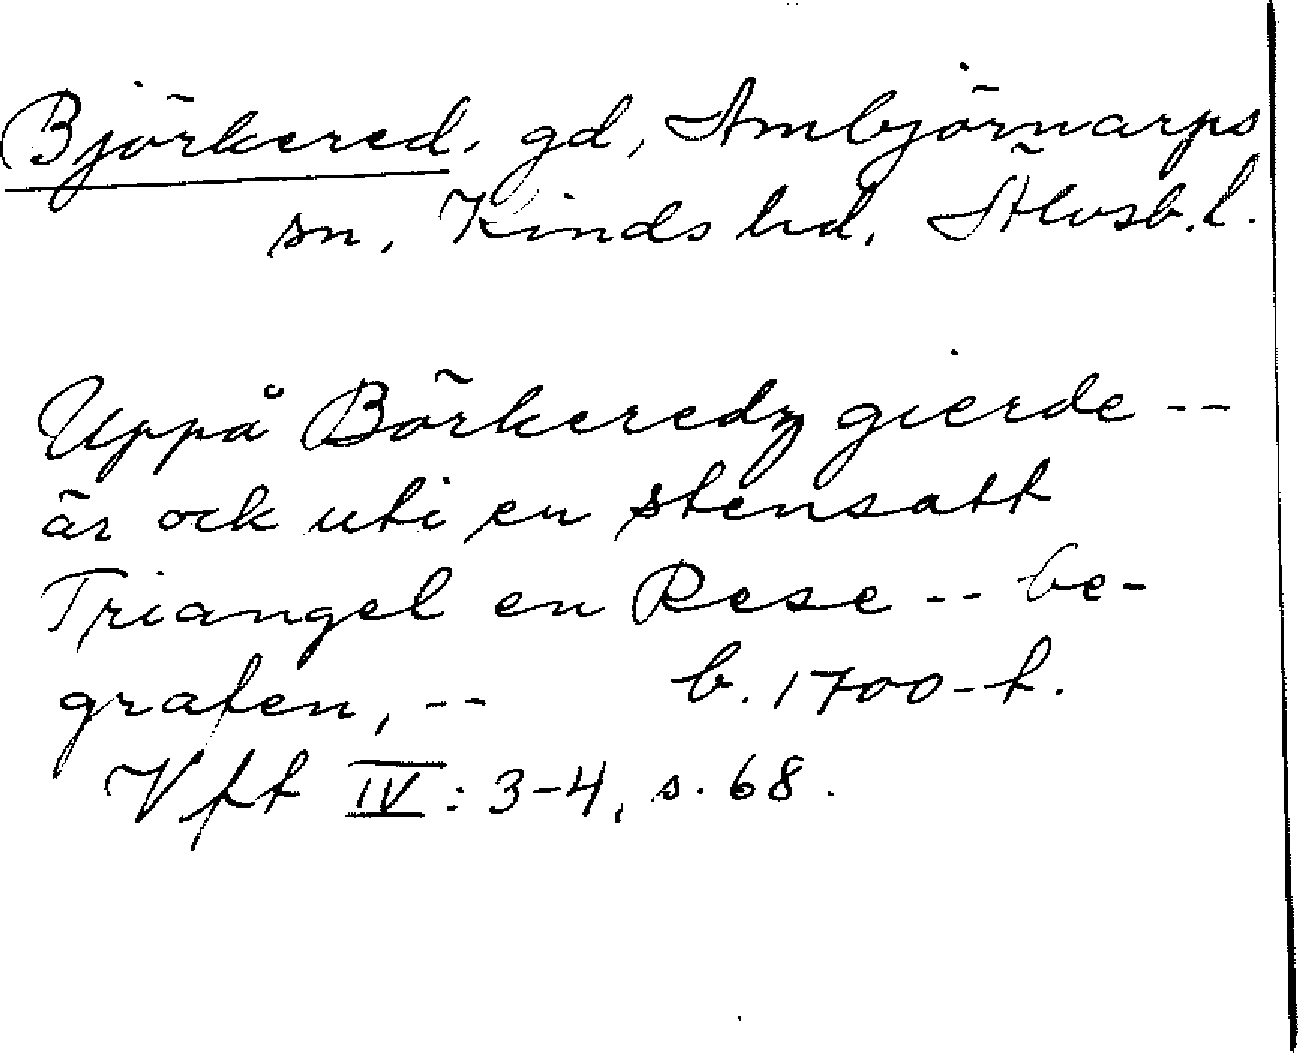 Björkered, gd, Ambjörnarps
sn, Kinds hd, Älvsb. l.
Uppå Börkeredz gierde --
är ock uti en stensatt
Triangel en Rese -- be-
grafen, -- b. 1700-t.
Vft IV: 3-4, s. 68.